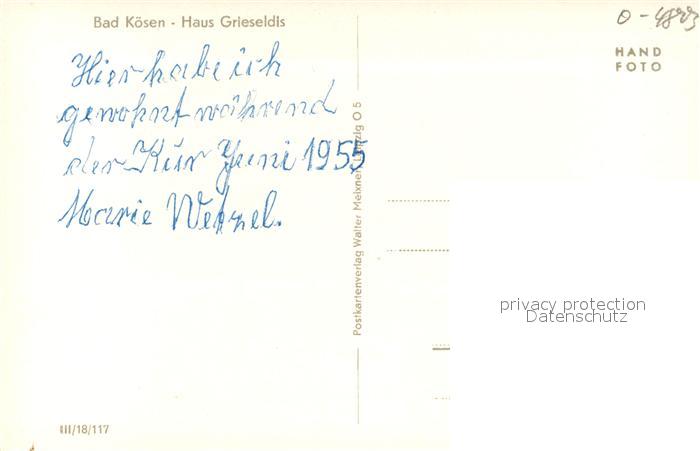 Bad Kösen - Haus Grieseldis
Hier habe ich
gewohnt während
der Kur Juni 1955
Marie Wetzel.
HAND
FOTO
Postkartenverlag Walter Meixner, Leipzig O 5
privacy protection
Datenschutz
III/18/117